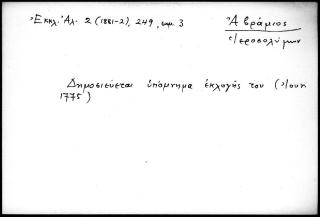 Ἐκκλ. Ἀλ. 2 (1881-2), 249, σημ. 3
Ἀβράμιος
Ἱεροσολύμων
Δημοσιεύεται ὑπόμνημα ἐκλογῆς του (Ἰουν
1775)